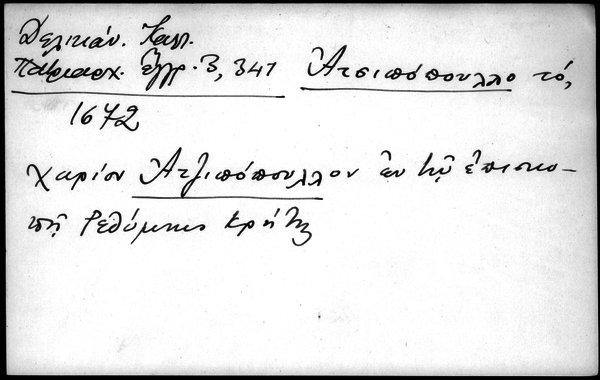 Δελικάν. Καλ.
Πατριαρχ. ἔγγρ. 3, 341 Ἀτσιπόπουλλο τό,
1672
χωρίον Ἀτζιπόπουλλον ἐν τῇ ἐπισκο-
πῇ Ῥεθύμνης Κρήτης